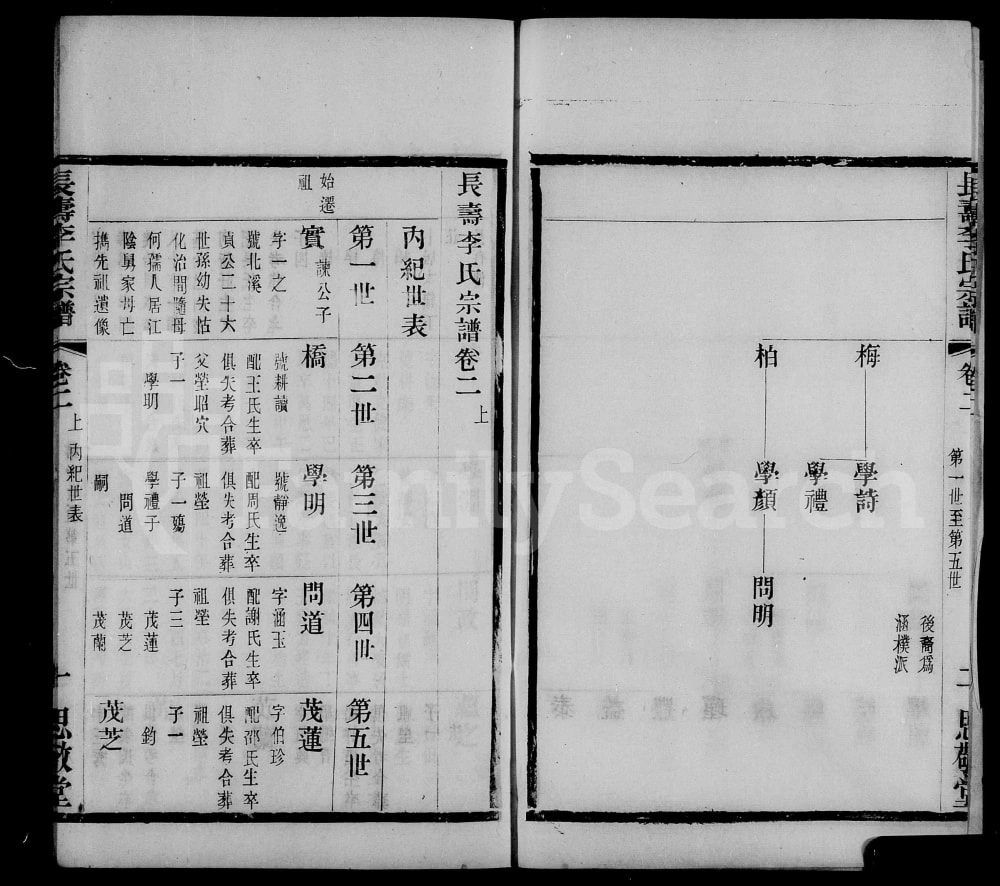 長壽李氏宗譜
卷二
第一世至第五世
二
思敬堂
後裔爲
涵樸派
梅
學詩
學禮
柏
學顏
問明
長壽李氏宗譜卷二
上
內紀世表
第一世
第二世
第三世
第四世
第五世
始遷
祖
實
諫公子
字一之
號北溪
貞公二十六
世孫幼失怙
化治間隨母
何孺人居江
陰舅家母亡
攜先祖遺像
橋
號耕讀
配王氏生卒
俱失考合葬
父塋昭穴
子一
學明
學明
號靜逸
配周氏生卒
俱失考合葬
祖塋
子一殤
學禮子
問道
嗣
問道
字涵玉
配謝氏生卒
俱失考合葬
祖塋
子三
茂蓮
茂芝
茂蘭
茂蓮
字伯珍
配邵氏生卒
俱失考合葬
祖塋
子一
鈞
茂芝
長壽李氏宗譜
卷二
上
內紀世表
第五世
一
思敬堂
FamilySearch